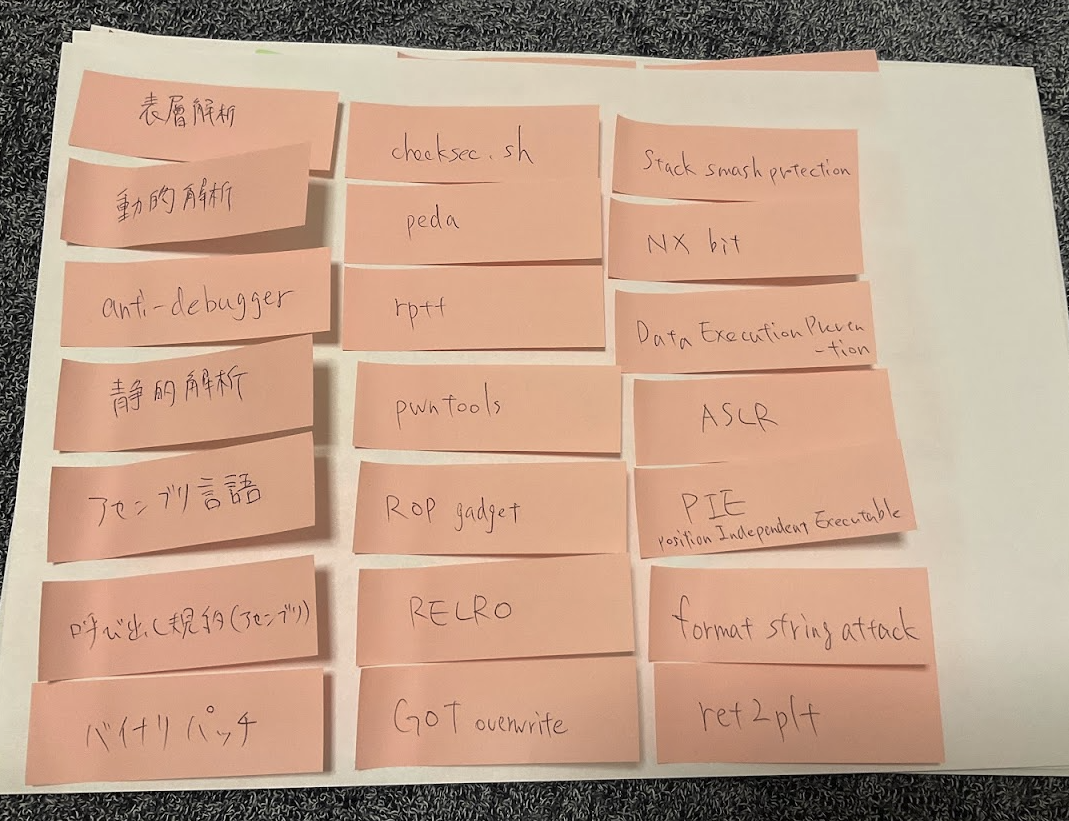 表層解析
動的解析
anti-debugger
静的解析
アセンブリ言語
呼び出し規約(アセンブリ)
バイナリパッチ
checksec.sh
peda
rp++
pwntools
ROP gadget
RELRO
GOT overwrite
Stack smash prtection
NX bit
Data Execution Preven
-tion
ASLR
PIE
Position Independent Executable
format string attack
ret2plt